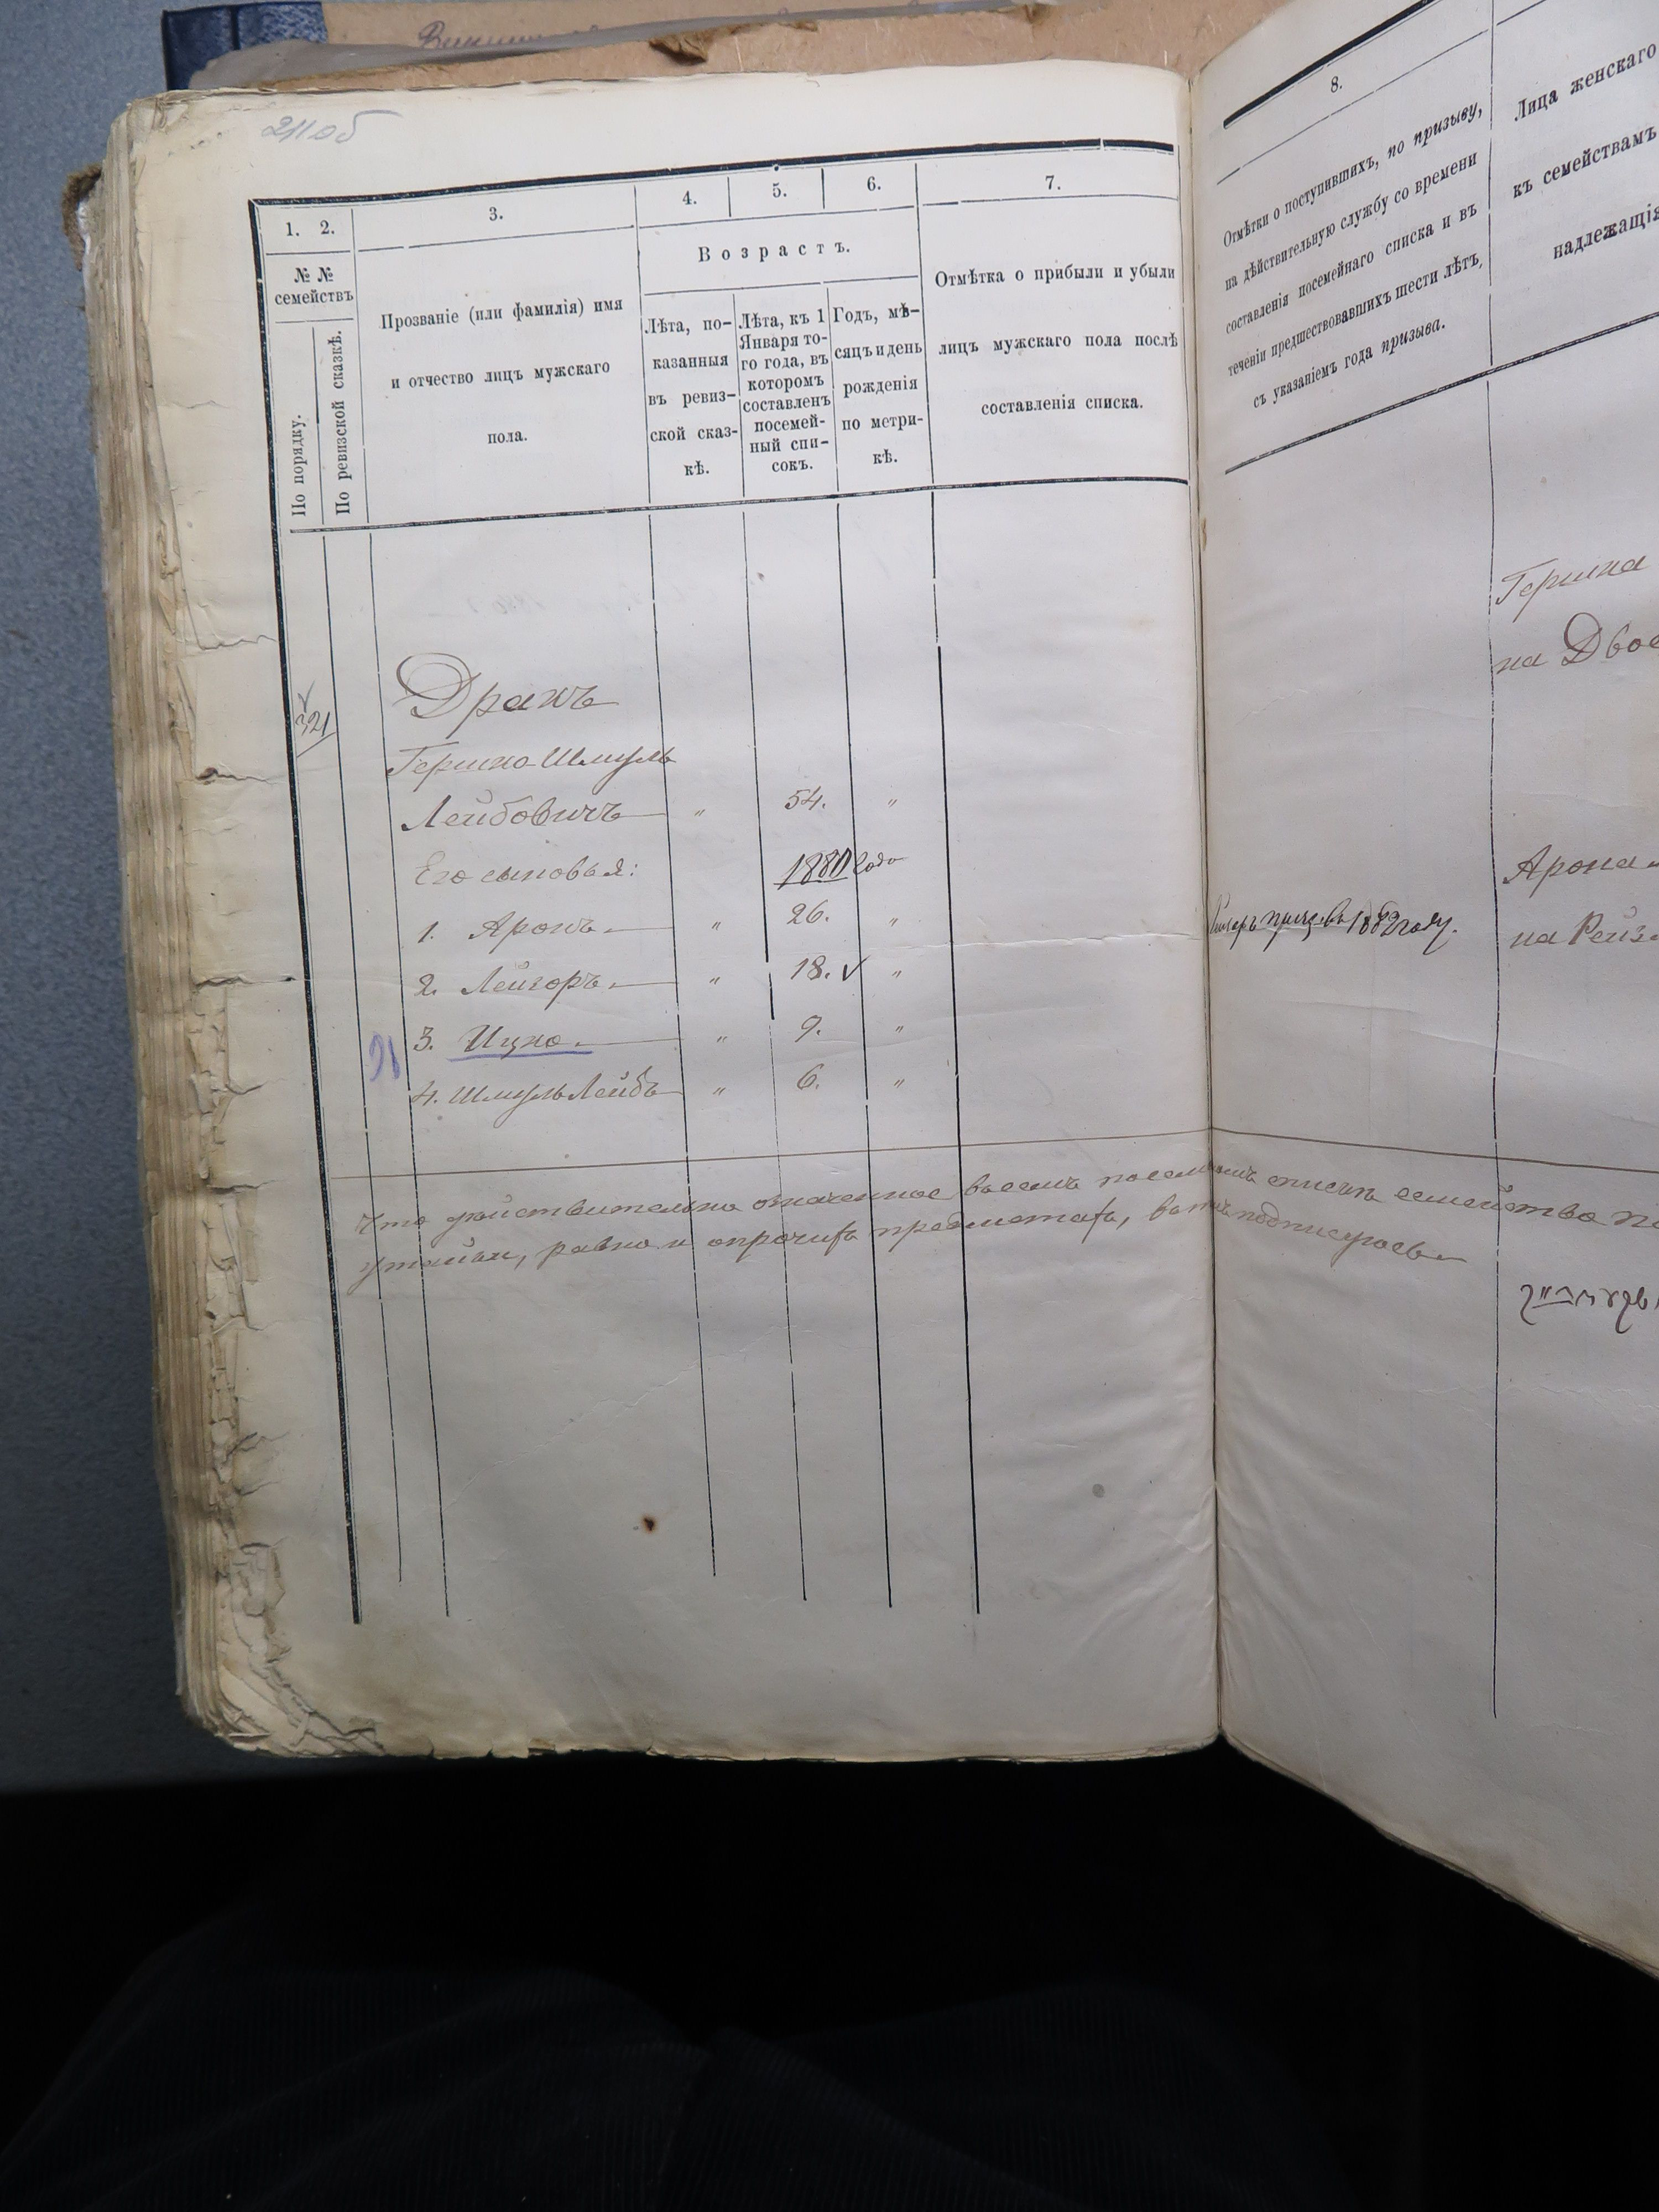 211об
1. 2.
3.
4.
5.
6.
7.
№ №
семействъ
По порядку.
По ревизской сказкѣ.
Прозваніе (или фамилія) имя
и отчество лицъ мужскаго
пола.
Возрастъ.
Лѣта, по-
казанныя
въ ревиз-
ской сказ-
кѣ.
Лѣта, къ 1
Января то-
го года, въ
которомъ
составленъ
посемей-
ный спи-
сокъ.
Годъ, мѣ-
сяцъ и день
рожденія
по метри-
кѣ.
Отмѣтка о прибыли и убыли
лицъ мужскаго пола послѣ
составленія списка.
321
Дракъ
Гершко Шмуль
Лейбовичъ — " 54. "
Его сыновья: 1880 года
1. Аронъ — " 26. "
2. Лейзоръ — " 18. ✓ "
3. Ицко — " 9. "
4. Шмуль Лейбъ — " 6. "
Что дѣйствительно означенное въ семъ посемейномъ спискѣ семейство
утайки, равно и опрочихъ предметахъ, въ томъ подписуюсь
8.
Отмѣтки о поступившихъ, по призыву,
на дѣйствительную службу со времени
составленія посемейнаго списка и въ
теченіи предшествовавшихъ шести лѣтъ,
съ указаніемъ года призыва.
Лица женскаго
къ семействамъ
надлежащія
Гершка
на Двое
1882 году.
Арона
на Рейз